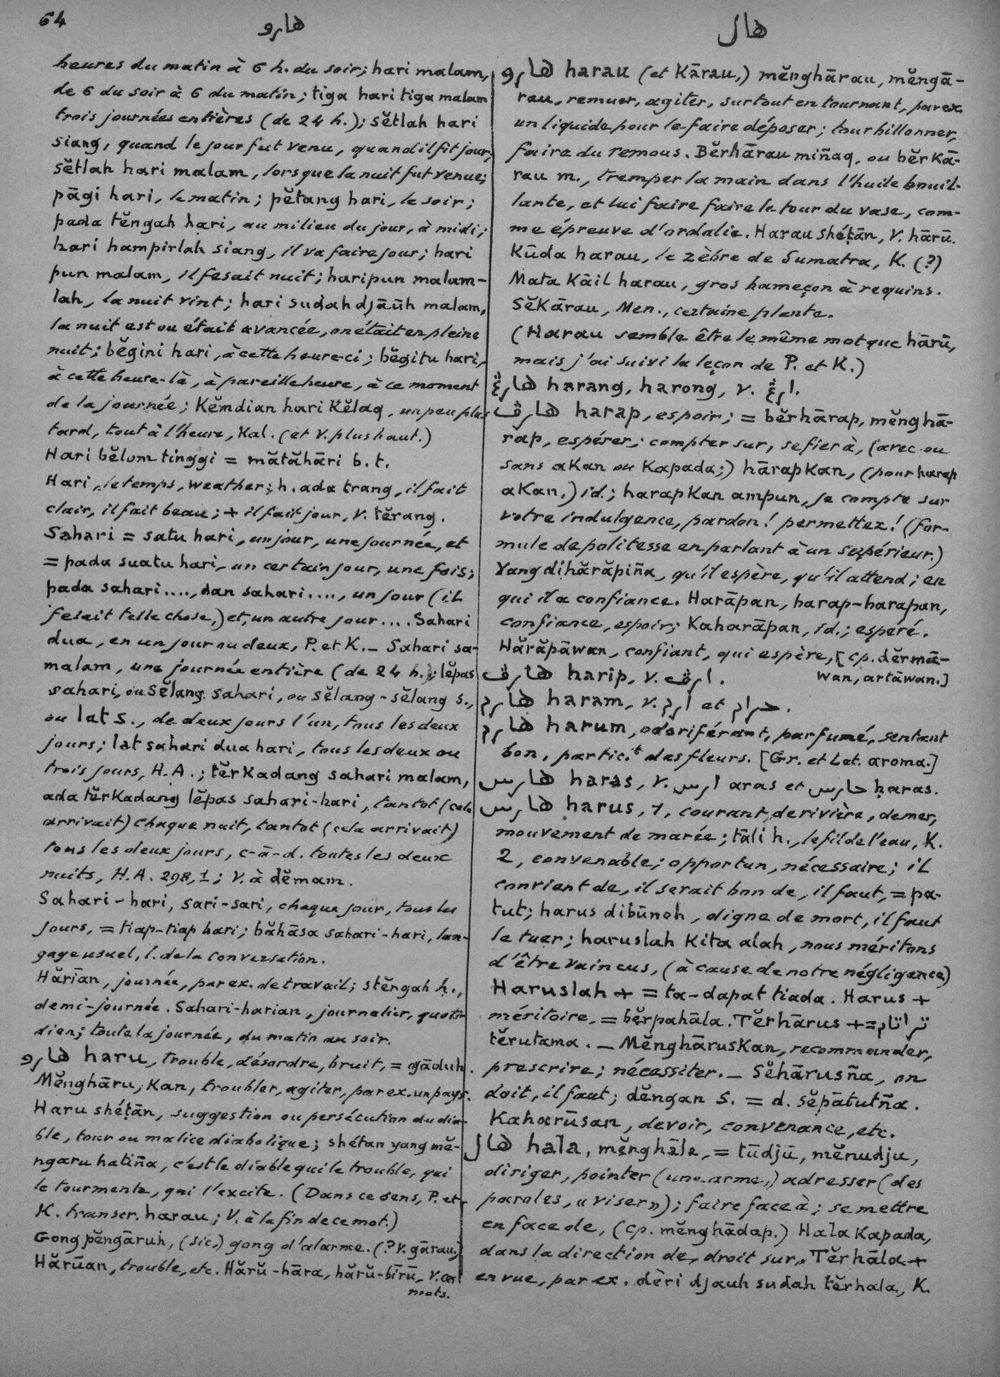 64
هارو
هال
heures du matin à 6 h. du soir; hari malam,
de 6 du soir à 6 du matin; tiga hari tiga malam
trois journées entières (de 24 h.); sĕtlah hari
siang, quand le jour fut venu, quand il fit jour;
sĕtlah hari malam, lorsque la nuit fut venue;
pāgi hari, le matin; pĕtang hari, le soir;
pada tĕngah hari, au milieu du jour, à midi;
hari hampirlah siang, il va faire jour; hari
pun malam, il fesait nuit; haripun malam-
lah, la nuit vint; hari sudah djāūh malam,
la nuit est ou était avancée, on était en pleine
nuit; bĕgini hari, à cette heure-ci; bĕgitu hari,
à cette heure-là, à pareille heure, à ce moment
de la journée; Kĕmdian hari Kĕlaq, un peu plus
tard, tout à l'heure, Kal. (et v. plus haut.)
Hari bĕlom tinggi = mătăhāri b. t.
Hari, le temps, weather; h. ada trang, il fait
clair, il fait beau; + il fait jour, v. tĕrang.
Sahari = satu hari, un jour, une journée, et
= pada suatu hari, un certain jour, une fois;
pada sahari ...., dan sahari ...., un jour (il
fesait telle chose,) et, un autre jour .... Sahari
dua, en un jour ou deux, P. et K. _ Sahari sa-
malam, une journée entière (de 24 h.); lĕpas
sahari, ou Sĕlang sahari, ou sĕlang-sĕlang s.,
ou lat s., de deux jours l'un, tous les deux
jours; lat sahari dua hari, tous les deux ou
trois jours, H.A.; tĕrkadang sahari malam,
ada tĕrKadang lĕpas sahari-hari, tantot (cela
arrivait) chaque nuit, tantot (cela arrivait)
tous les deux jours, c-à-d. toutes les deux
nuits, H.A. 298,1; v. à dĕmam.
Sahari-hari, sari-sari, chaque jour, tous les
jours, = tiap-tiap hari; băhāsa sahari-hari, lan-
gage usuel, l. de la conversation.
Hărīan, journée, par ex. de travail; stĕngah h.,
demi-journée. Sahari-harian, journalier, quoti-
dien; toute la journée, du matin au soir.
هارو haru, trouble, désordre, bruit, = gāduh.
Mĕnghāru, Kan, troubler, agiter, par ex. un pays.
Haru shétān, suggestion ou persécution du dia-
ble, tour ou malice diabolique; shétan yang mĕ-
ngaru hatiña, c'est le diable qui le trouble, qui
le tourmente, qui l'excite. (Dans ce sens, P. et
K. transcr. harau; v. à la fin de ce mot.)
Gong pĕngāruh, (sic,) gong d'alarme. (? v. gārau.)
Hărūan, trouble, etc. Hărŭ-hāra, hărŭ-bīrū, v. ces
mots.
هارو harau (et Kārau,) mĕnghārau, mĕngā-
rau, remuer, agiter, surtout en tournant, par ex.
un liquide pour le faire déposer; tourbillonner,
faire du remous. Bĕrhārau miñaq, ou bĕrkā-
rau m., tremper la main dans l'huile bouil-
lante, et lui faire faire le tour du vase, com-
me épreuve d'ordalie. Harau shétān, v. hārū.
Kūda harau, le zèbre de Sumatra, K. (?)
Mata Kāil harau, gros hameçon à requins.
SĕKārau, Men., certaine plante.
(Harau semble être le même mot que hārū,
mais j'ai suivi la leçon de P. et K.)
هارڠ harang, harong, v. ارڠ.
هارڤ harap, espoir; = bĕrhārap, mĕnghā-
rap, espérer; compter sur, se fier à, (avec ou
sans aKan ou Kapada;) hārapkan, (pour harap
aKan,) id.; harapKan ampun, je compte sur
votre indulgence, pardon! permettez! (for-
mule de politesse en parlant à un supérieur.)
Yang dihărăpiña, qu'il espère, qu'il attend; en
qui il a confiance. Harāpan, harap-harapan,
confiance, espoir; Kaharāpan, id.; espéré.
Hărăpāwan, confiant, qui espère, [cp. dĕrmā-
wan, artāwan.]
هارڤ harip, v. ارڤ.
هارم haram, v. ارم et حرام.
هارم harum, odoriférant, parfumé, sentant
bon, partic.t des fleurs. [Gr. et Lat. aroma.]
هارس haras, v. ارس aras et حارس ḥaras.
هارس harus, 1, courant, de rivière, de mer,
mouvement de marée; tāli h., le fil de l'eau, K.
2, convenable; opportun, nécessaire; il
convient de, il serait bon de, il faut, = pa-
tut; harus dibūnoh, digne de mort, il faut
le tuer; haruslah Kita alah, nous méritons
d'être vaincus, (à cause de notre négligence)
Haruslah + = ta-dapat tiada. Harus +
méritoire, = bĕrpahāla. Tĕrhārus + = تراتام
tĕrutama. _ MĕnghārusKan, recommander,
prescrire; nécessiter. _ Sĕhārusña, on
doit, il faut; dĕngan s. = d. sĕpātutña.
Kaharūsan, devoir, convenance, etc.
هال hala, mĕnghāla, = tūdjū, mĕnudju,
diriger, pointer (une arme,) adresser (des
paroles, « viser »); faire face à; se mettre
en face de, (cp. mĕnghādap.) Hala Kapada,
dans la direction de, droit sur. Tĕrhāla +
en vue, par ex. dĕri djauh sudah tĕrhala, K.